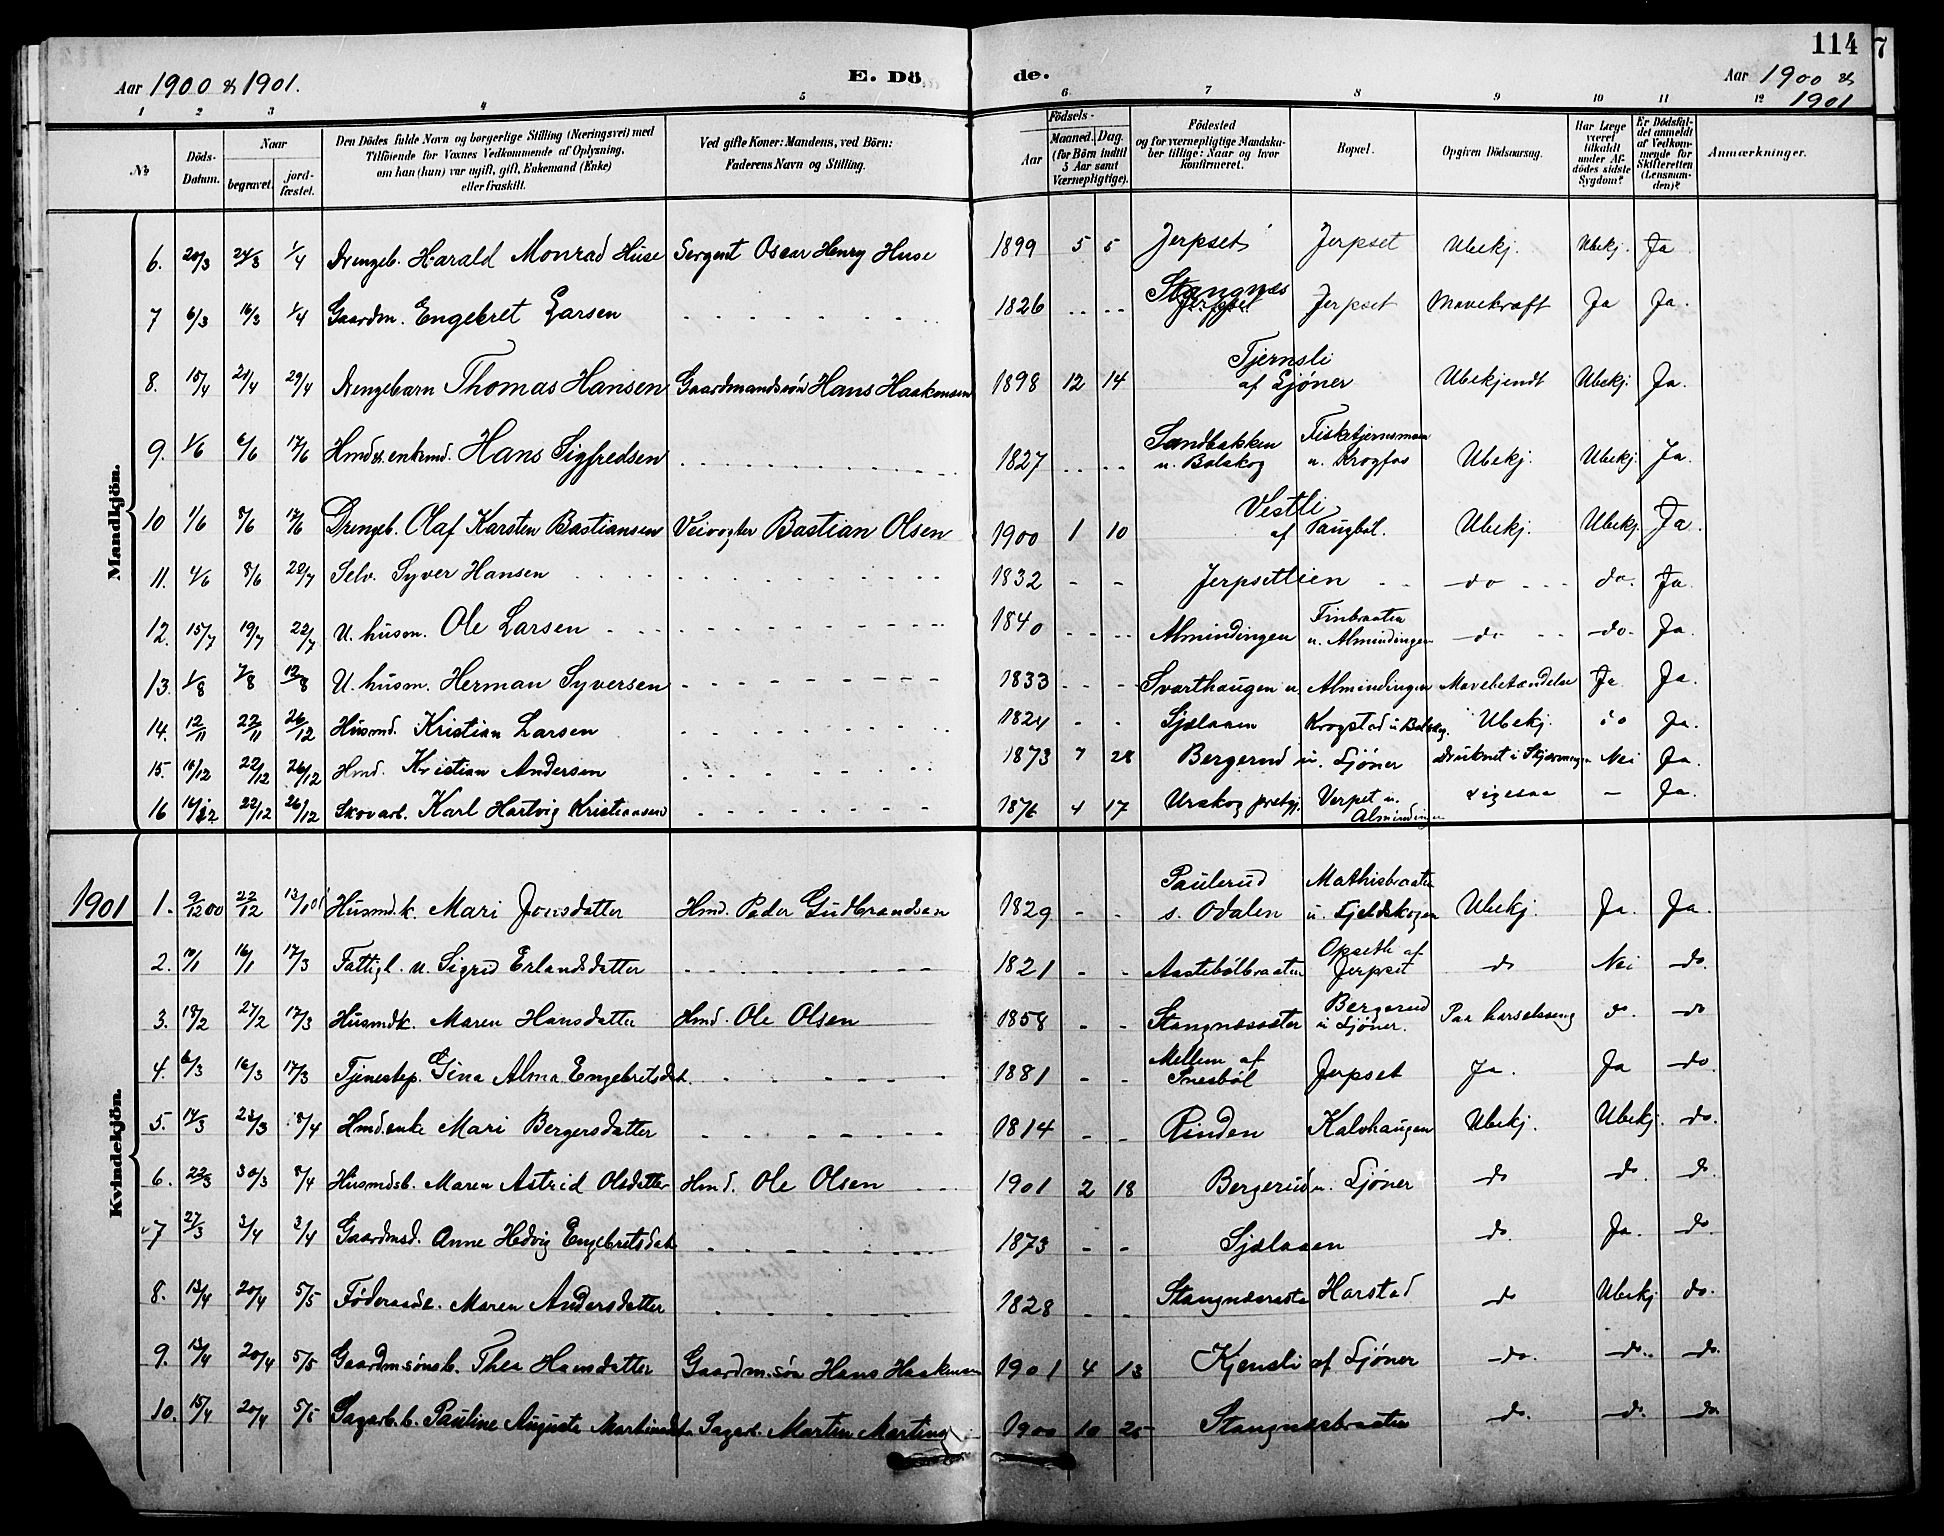 114
7
Aar 1900 & 1901.
E. Döde.
Aar 1900 &
1901
1 2 3 4 5 6 7 8 9 10 11 12
No
Döds-Datum.
Naar
begravet.
jord-fæstet.
Den Dödes fulde Navn og borgerlige Stilling (Næringsvei) med
Tilföiende for Voxnes Vedkommende af Oplysning,
om han (hun) var ugift, gift, Enkemand (Enke)
eller fraskilt.
Ved gifte Koner: Mandens, ved Börn:
Faderens Navn og Stilling.
Födsels-
Aar
Maaned. Dag.
(for Börn indtil
5 Aar samt
Værnepligtige).
Födested
og for værnepligtige Mandskaber tillige: Naar og hvor
konfirmeret.
Bopæl.
Opgiven Dödsaarsag.
Har Læge
været
tilkaldt
under Afdödes sidste
Sygdom?
Er Dödsfaldet anmeldt
af Vedkommende for
Skifteretten
(Lensmanden)?
Anmærkninger.
Mandkjön.
6. 20/3 24/3 1/4 Drengeb. Harald Monrad Huse Sergent Oscar Henry Huse 1899 5 5 Jerpset Jerpset Ubekj. Ubekj. Ja
7 6/3 16/3 1/4 Gaardm. Engebret Larsen 1826 Stangnæs Jerpset Mavekræft Ja Ja.
8. 15/4 21/4 29/4 Drengebarn Thomas Hansen Gaardmandssön Hans Haakensen 1898 12 14 Tjernsli af Ljöner Ubekjendt Ubekj. Ja.
9. 1/6 6/6 17/6 Hans Sigfredsen 1827 Sandbakken u. Bolskog Fisketjernsmoen u. Krogfos Ubekj. Ubekj. Ja.
10 1/6 8/6 17/6 Drengeb. Olaf Karsten Bastiansen Veivogter Bastian Olsen 1900 1 10 Vestli af Taugböl. Ubekj. Ubekj. Ja.
11. 4/6 8/6 22/7 Selv. Syver Hansen 1832 - - Jerpsetlien do do. Ja.
12. 15/7 19/7 22/7 U. husm. Ole Larsen 1840 Almindingen Finbraaten u. Almindingen do do. Ja.
13. 1/8 7/8 12/8 U. husm. Herman Syversen 1833 Svarthaugen u. Almindingen Mavebetændelse Ja Ja.
14. 12/11 22/11 26/12 Husmd. Kristian Larsen 1824 - - Sjölaaen Krogstad u Bolskog. Ubekj. do Ja.
15. 16/12 22/12 26/12 Hmd. Kristian Andersen 1873 7 28 Bergerud u. Ljöner Druknet i Nei Ja.
16 16/12 22/12 26/12 Skovarb. Karl Hartvig Kristiansen 1876 4 17 Urskog prstgj. Verpet u. Almindingen Ligesaa - Ja.
1901
Kvindekjön.
1. 9/12 00 22/12 13/1 01 Husmdk. Mari Jonsdatter Hmd. Peder Gudbrandsen 1829 - - Paulerud s. Odalen Mathisbraaten u. Fjeldskogen Ubekj. Ja. Ja.
2. 10/1 16/1 17/3 Fattigl. u. Sigrid Erlandsdatter 1821 - - Aastebölbraaten Opseth af Jerpset do Nei do.
3. 18/2 27/2 17/3 Husmdk. Maren Hansdatter Hmd. Ole Olsen 1858 - - Stangnæssæter Bergerud u Ljöner. Paa barselseng do. do
4. 6/3 16/3 17/3 Tjenestep. Gina Alma Engebretsdat. 1881 - - Mellem af Snesböl Jerpset Ja. Ja do.
5. 14/3 23/3 8/4 Hmd.enke Mari Bergersdatter 1814 - - Rinden Kalvhaugen Ubekj. Ubekj. do.
6. 22/3 30/3 8/4 Husmdsb. Maren Astrid Olsdatter Hmd. Ole Olsen 1901 2 18 Bergerud u. Ljöner do do. do.
7 27/3 3/4 3/4 Gaardmsd. Anne Hedvig Engebretsdat 1873 - - Sjölaaen do. Ja. do.
8. 13/4 20/4 5/5 Föderaadk. Maren Andersdatter 1828 Harstad do Ubekj do.
9. 13/4 20/4 5/5 Gaardmsönsb. Thea Hansdatter Gaardm.sön Hans Haakensen 1901 4 13 Kjensli af Ljöner do. do. do.
10. 15/4 20/4 5/5 Sagarb.b. Pauline Auguste Sagarb. Martin 1900 10 25 Stangnæsbraaten do. do. do.